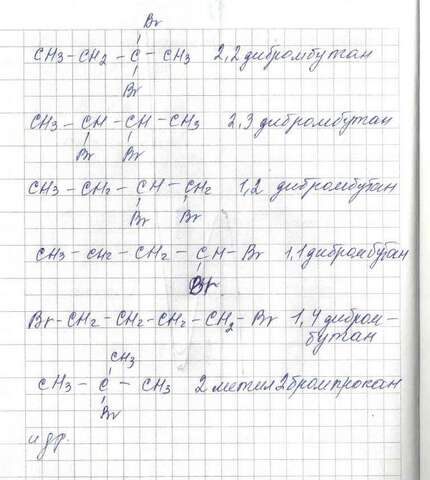 Br
CH3-CH2-C-CH3 2,2 дибромбутан
Br
CH3-CH-CH-CH3 2,3 дибромбутан
Br Br
CH3-CH2-CH-CH2 1,2 дибромбутан
Br Br
CH3-CH2-CH2-CH-Br 1,1 дибромбутан
Br
Br-CH2-CH2-CH2-CH2-Br 1,4 дибром-
бутан
CH3
CH3-C-CH3 2 метил 2 бромпропан
Br
и др.